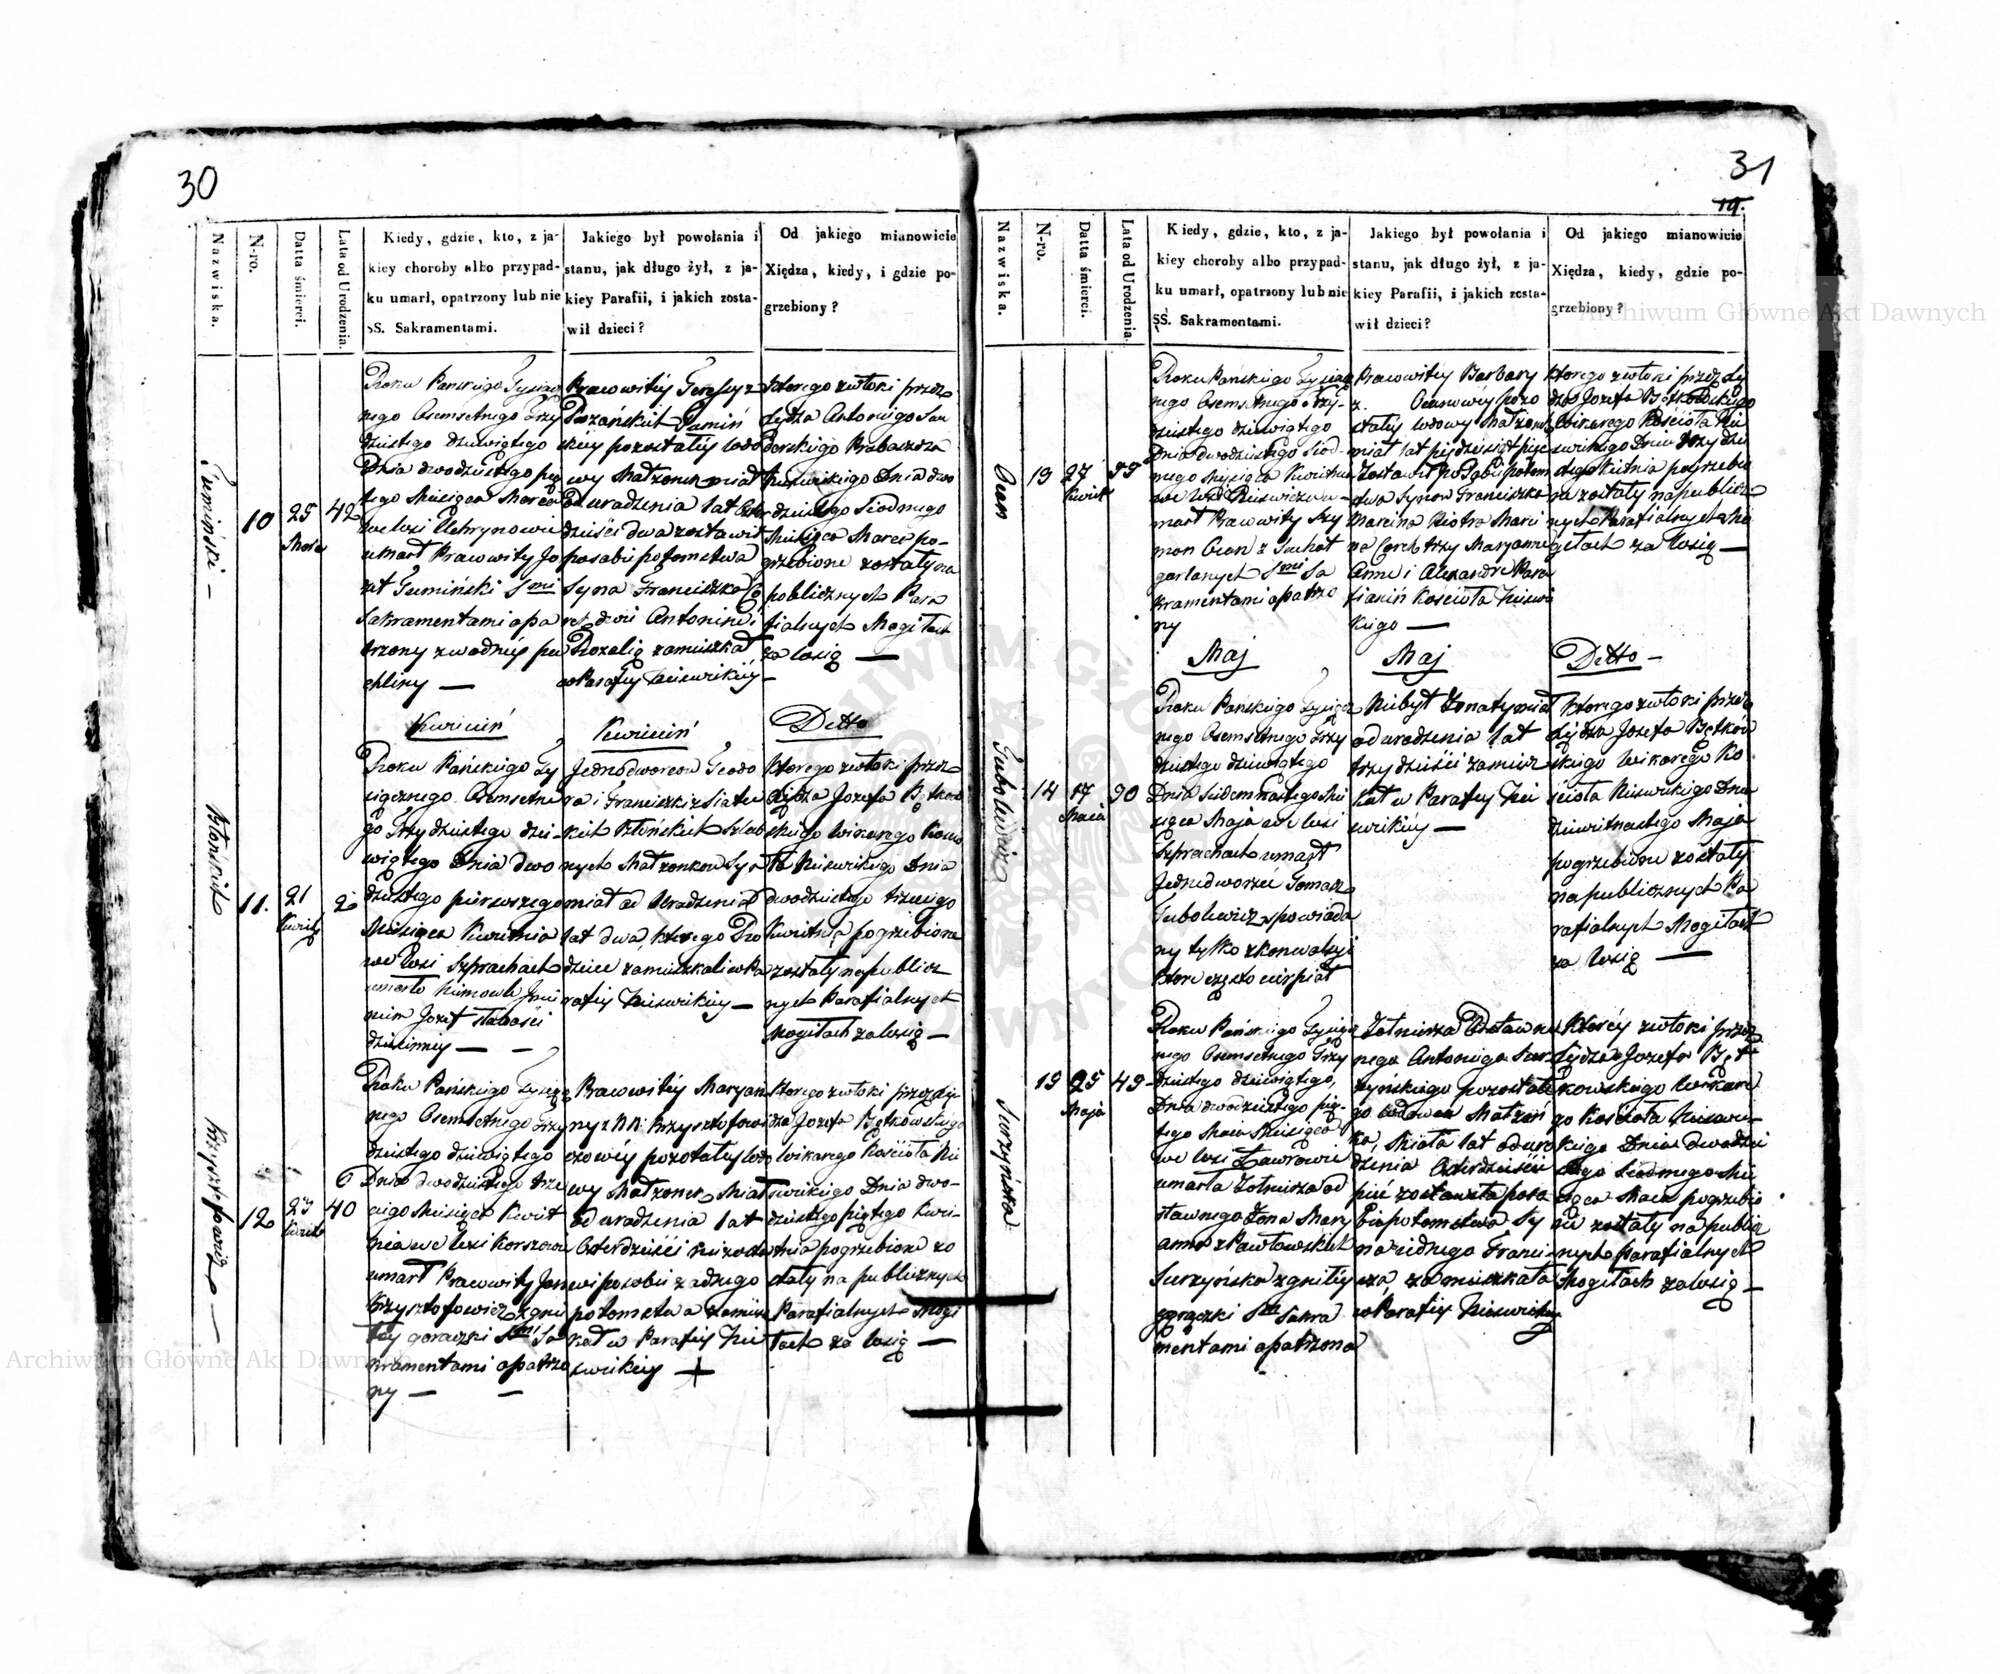 30
Nazwiska.
N-ro.
Datta śmierci.
Lata od Urodzenia.
Kiedy, gdzie, kto, z ja-
kiey choroby albo przypad-
ku umarł, opatrzony lub nie
SS. Sakramentami.
Jakiego był powołania i
stanu, jak długo żył, z ja-
kiey Parafii, i jakich zosta-
wił dzieci?
Od jakiego mianowicie
Xiędza, kiedy, i gdzie po-
grzebiony?
10
25
42
Roku Pańskiego Tysiącz
nego Osemsetnego Trzy
dziestego dziewiątego
Dnia dwódziestego pią
tego Miesiąca Marca
we Wsi
umarł Pracowity Jó
zef Gumiński
Sakramentami opa
trzony z wodnéy pu
chliny —
Pracowitéy Teressy z
pozostałéy wdo
wy Małżonek miał
od urodzenia lat Czter
dzieście dwa zostawił
po sobie potomstwa
Syna Franciszka Có
rek dwie Antoninę i
Rozalię zamieszkał
w Parafij
którego zwłoki przez
Xiędza Antoniego San
dorskiego Proboszcza
Dnia dwó
dziestego Siódmego
Miesiąca Marca po-
grzebione zostały na
publicznych Para
fialnych Mogiłach
za Wsią —
Kwiecień
Kwiecień
Detto
11.
21
2
Roku Pańskiego Ty
siącznego Osemsetne
go Trzydziestego dzie-
wiątego Dnia dwó
dziestego pierwszego
Miesiąca Kwietnia
we Wsi Szprachach
umarło niemowle Imie
niem Jozef słabości
dziecinney — —
Jednodworców Teodo
ra i Franciszki z
Szlub
nych Małżonków Syn
miał od Urodzenia
lat dwa którego Ro
dzice zamieszkali w Pa
rafij —
którego zwłoki przez
Xiędza Jozefa
skiego Wikarego Kościo
ła Dnia
dwódziestego trzeciego
Kwietnia pogrzebione
zostały na publicz
nych Parafialnych
Mogiłach za Wsią —
Krzysztofowicz —
12
23
40
Roku Pańskiego Tysiącz
nego Osemsetnego Trzy
dziestego dziewiątego
Dnia dwódziestego trze
ciego Miesiąca Kwiet
nia we Wsi
umarł Pracowity Jan
Krzysztofowicz z gni
łéy gorączki Sakramentami opatrzo
ny — —
Pracowitéy Maryan
ny z Krzysztofowi
czowéy pozostałéy wdo
wy Małżonek Miał
od urodzenia lat
Czterdzieści niezosta
wił po sobie żadnego
potomstwa zamiesz
kał w Parafij
którego zwłoki przez Xię
dza Jozefa
Wikarego Kościoła
Dnia dwó-
dziestego piątego Kwie-
tnia pogrzebione zo
stały na publicznych
Parafialnych Mogi
łach za Wsią —
31
19.
Nazwiska.
N-ro.
Datta śmierci.
Lata od Urodzenia.
Kiedy, gdzie, kto, z ja-
kiey choroby albo przypad-
ku umarł, opatrzony lub nie
SS. Sakramentami.
Jakiego był powołania i
stanu, jak długo żył, z ja-
kiey Parafii, i jakich zosta-
wił dzieci?
Od jakiego mianowicie
Xiędza, kiedy, gdzie po-
grzebiony?
13
27
55
Roku Pańskiego Tysiącz
nego Osemsetnego Trzy-
dziestego dziewiątego
Dnia dwódziestego Siód-
mego Miesiąca Kwietnia
we Wsi u-
marł Pracowity Szy
mon z Suchot
garlanych Sa
kramentami opatrzo
ny
Pracowitey Barbary
z pozo
stałey wdowy Małżonek
miał lat pięćdziesiąt pięć
Zostawił po Sobie potom
stwa Synow Franciszka
Marcina Piotra
na Corek trzy Maryannę
Annę i Alexandrę Para
fianin Kościoła
—
którego zwłoki przez Xię
dza Jozefa
Wikarego Kościoła
Dnia trzydzie
stego Kwietnia pogrzebio
na zostały na publicz
nych Parafialnych Mo
giłach za Wsią —
Maj
Maj
Detto —
14
17
Maia
30
Roku Pańskiego Tysiącz
nego Osemsetnego Trzy
dziestego dziewiątego
Dnia Siedemnastego Mie
siąca Maja we Wsi
Szprachach umarł
Jednodworzec Tomasz
spowiada
ny tylko z konwulsyi
które często cierpiał
Niebył Żonaty miał
od urodzenia lat
trzydzieści zamiesz
kał w Parafij
—
którego zwłoki przez
Xiędza Jozefa
skiego Wikarego Ko
ścioła Dnia
dziewiętnastego Maja
pogrzebione zostały
na publicznych Pa
rafialnych Mogiłach
za Wsią —
15
25
Maja
45
Roku Pańskiego Tysiącz
nego Osemsetnego Trzy
dziestego dziewiątego,
Dnia dwódziestego pią-
tego Maia Miesiąca
we Wsi Ławrowie
umarła Żołnierza od
stawnego Żona Mary
anna z Pawłowskich
Surzyńska z gniłéy
gorączki Sakra
mentami opatrzona
Żołnierza Odstawne
nego Antoniego Sur
zyńskiego pozostałe
go wdowca Małżon
ka, Miała lat od uro
dzenia Czterdzieści
pięć zostawiła po so
bie potomstwa Sy
na iednego Franci
szka, zamieszkała
w Parafij
któréy zwłoki przez
Xiędza Jozefa
Wikare
go Kościoła
Dnia dwódzie
stego Siódmego Mie
siąca Maia pogrzebio
ne zostały na public
nych parafialnych
Mogiłach za Wsią —
Surzyńska
Archiwum Główne Akt Dawnych
Archiwum Główne Akt Dawnych